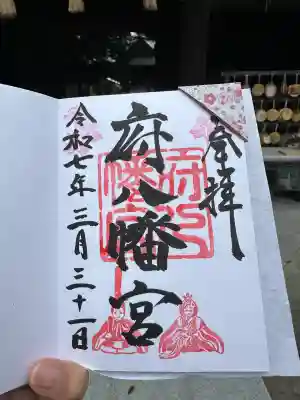 奉拝
府八幡宮
令和七年三月三十一日